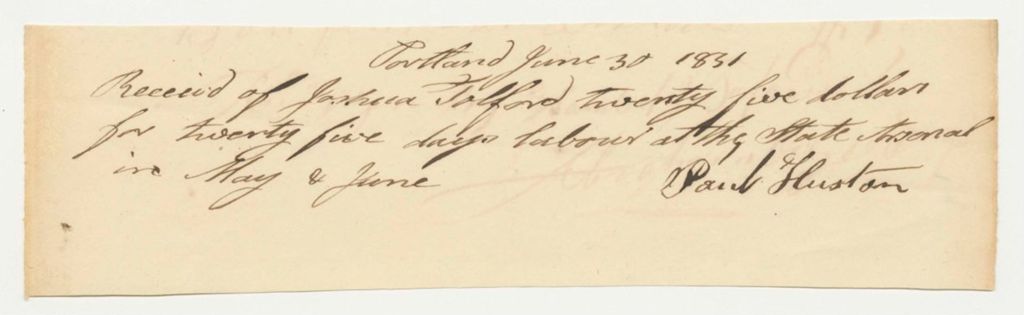 Portland June 30 1831
Receivd of Joshua Tolford twenty five dollars
for twenty five days labour at the State Arsenal
in May & June
Paul Huston